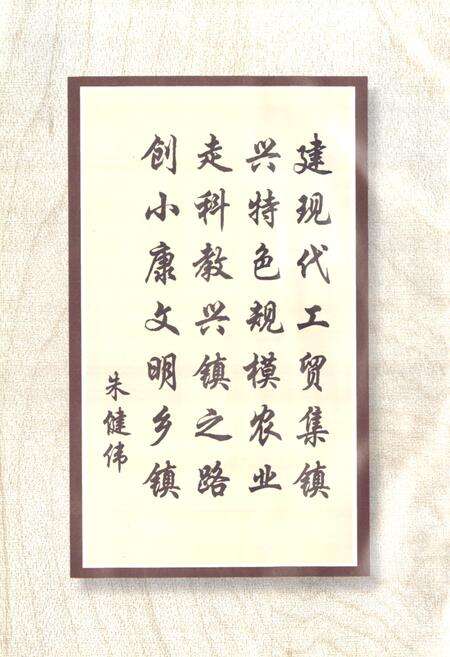 建现代工贸集镇
兴特色规模农业
走科教兴镇之路
创小康文明乡镇
朱健伟